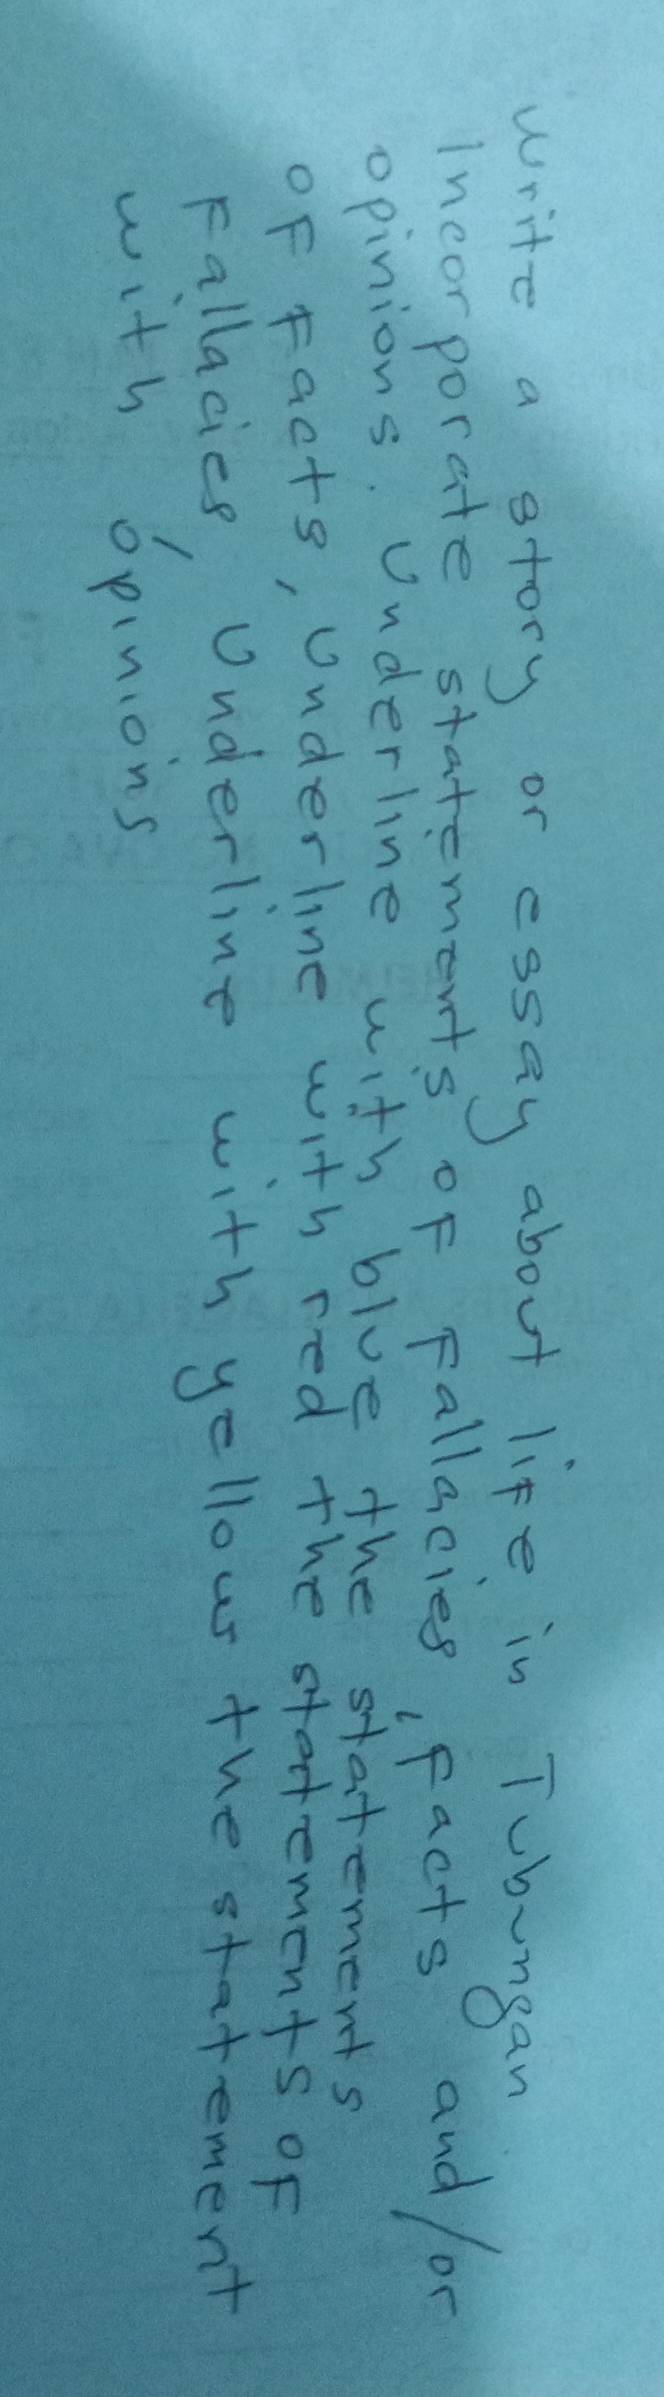 write a story or essay about life in Tubungan
Incorporate statements of Fallacies, Facts and/or
opinions. Underline with blue the statements
of Facts, Underline with red the statements of
Fallacies, Underline with yellow the statement
with opinions